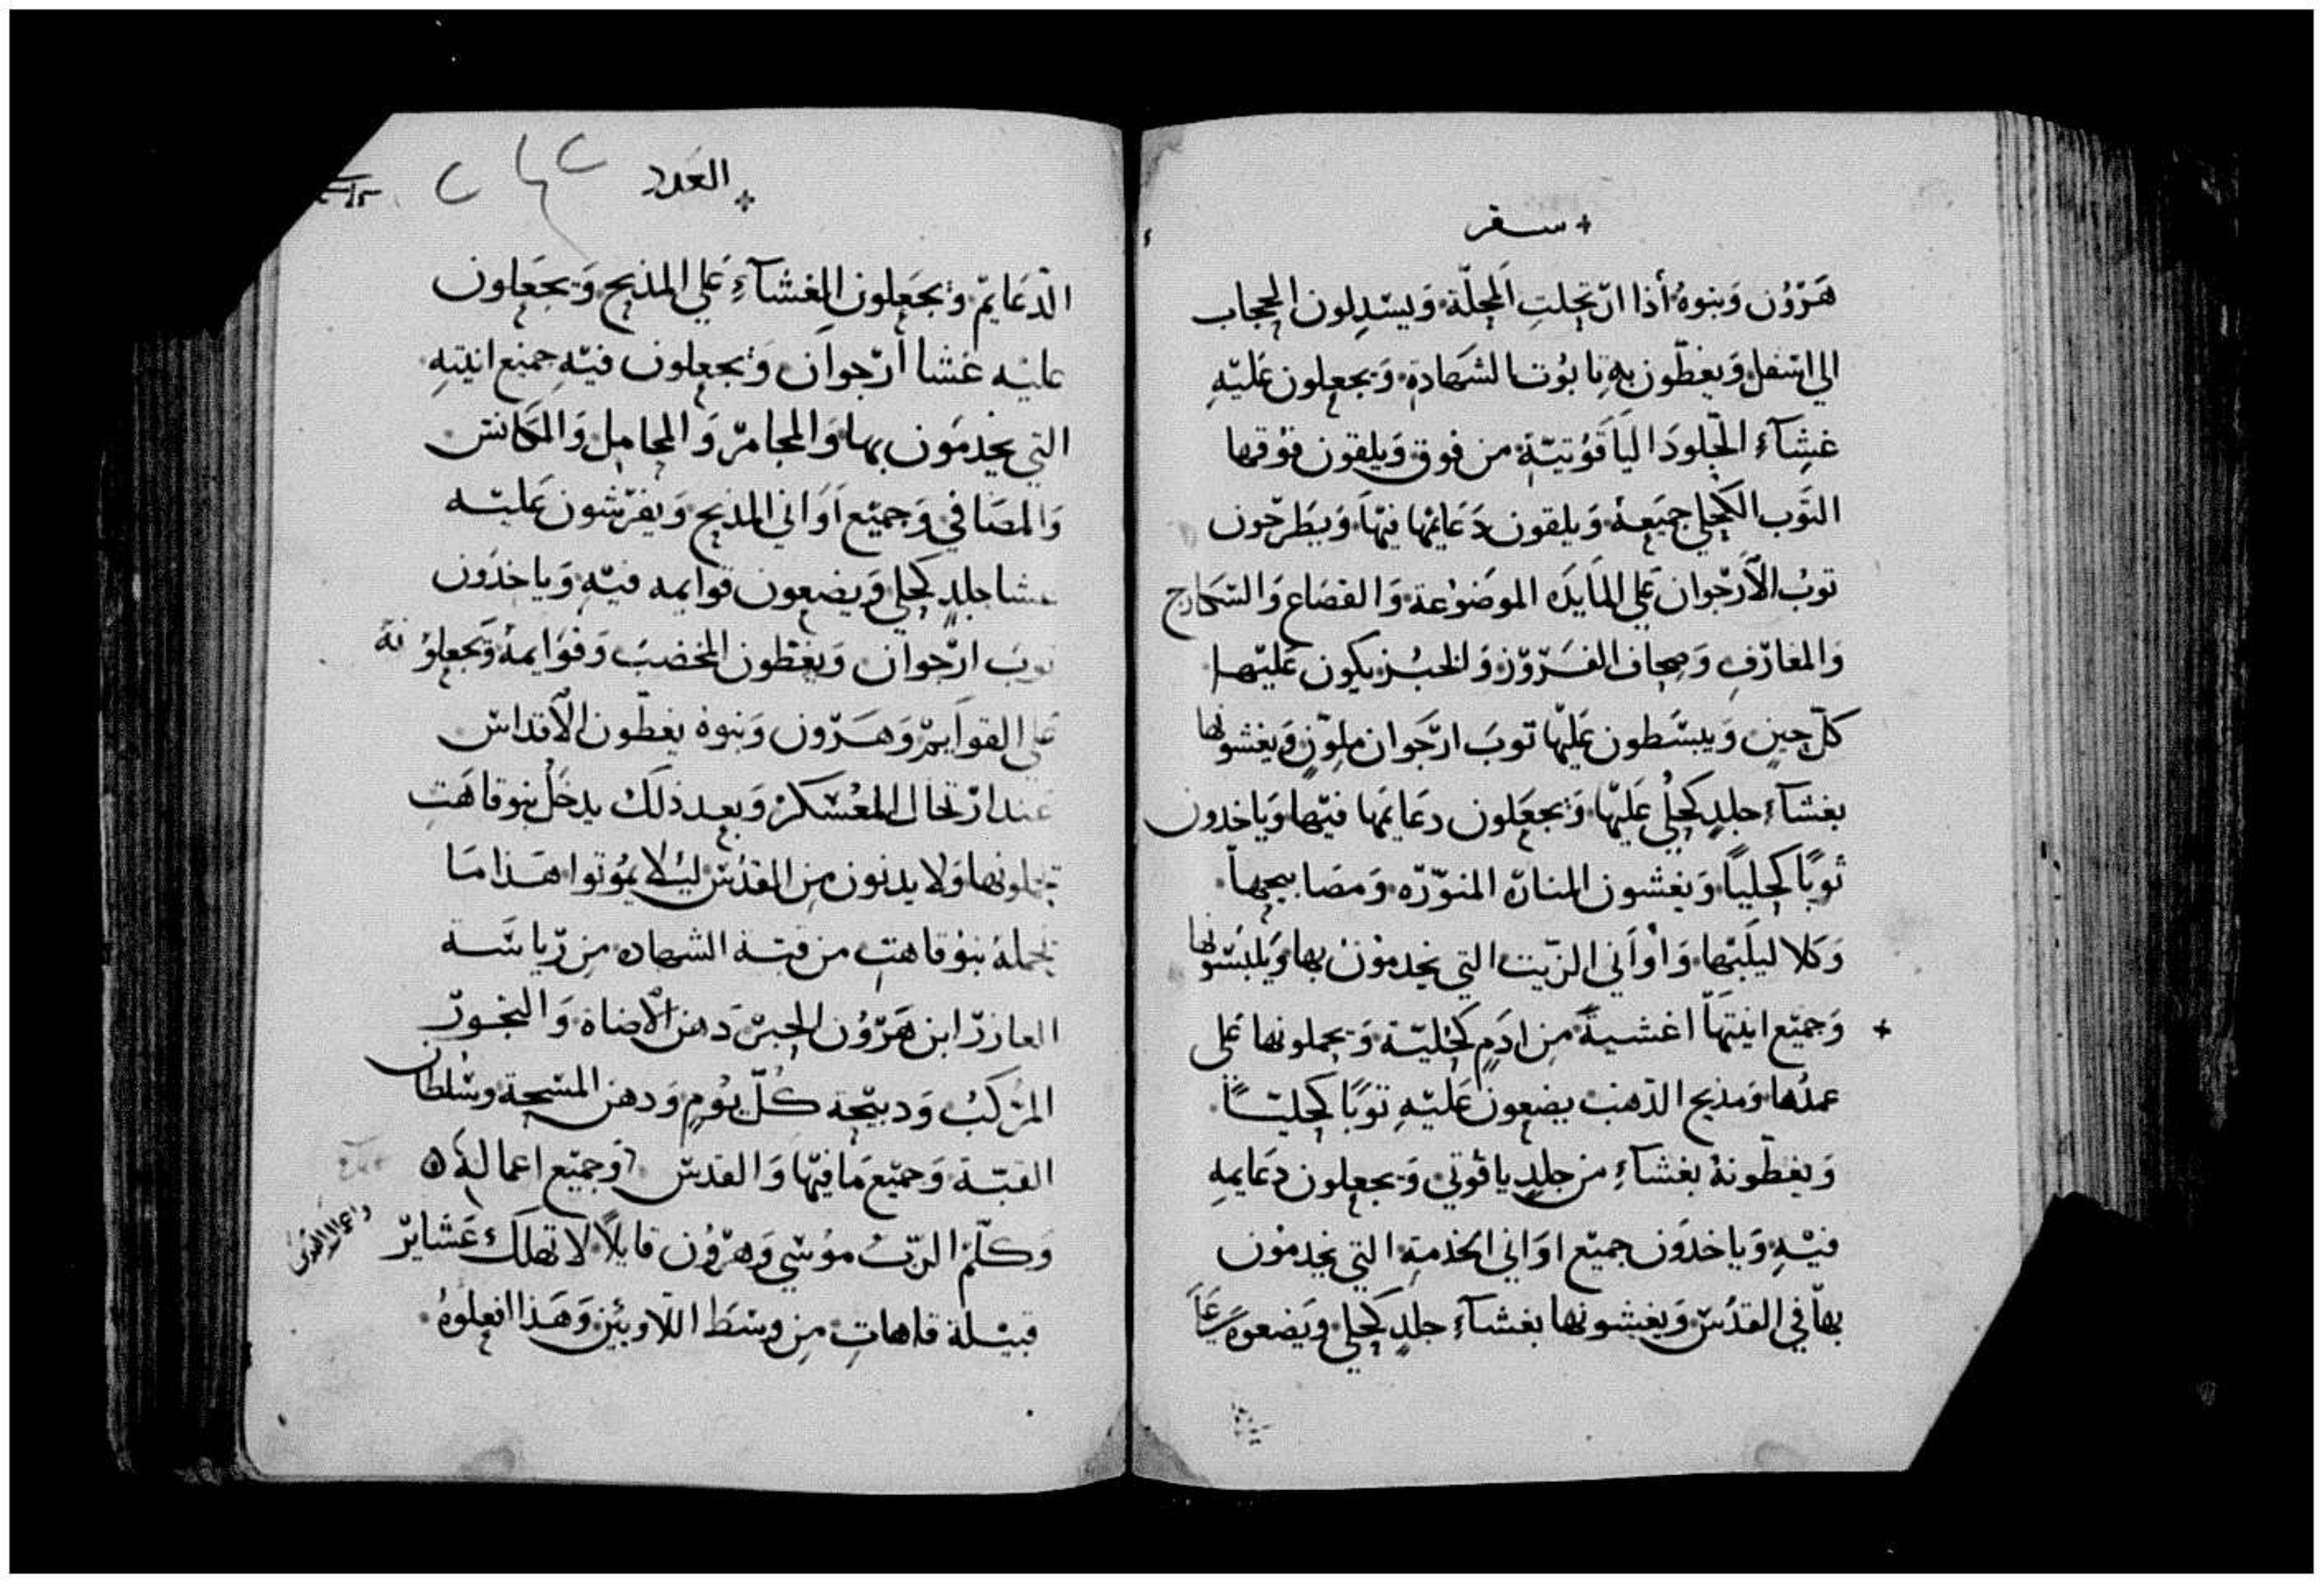 سفر
هَرّوُن وَبنوهُ أذا ارتحلتِ اَلمحِلّة وَيسْدِلون الحجاب
الي اسْفل وَيغطّون بهِ تابُوت الشهَادةِ وَيجعلون عَليْهِ
غشِآء الجّلودَ اليَاقوُتيّةِ من فوق وَيلقون فوْقها
التوَب الكحلي جميَعهُ وَيلقون دَعَايمْها فيْهَا وَيَطرحْون
توبُ الأرّجوان عَلي المَايدَه الموضَوُعة وَالقصَاع وَالسّكارج
وَالمغارّفِ وَصِحاف الفَرّوزْ وَالخبُز يكون عَليْها
كلّ حِينٍ وَيبسَّطون عَليْها توبَ ارّجَوان ملوّنٍ وَيغشونها
بغشآءِ جلدٍ كحليُ عَليْها وَيجعَلون دعَايمَها فيْها وَياخدون
ثوبًا كحليًا وَيغشون المنارّة المنوّرّه وَمصَابيحهاَ
وَكلاليبَها وَاوْاَني الزّيت التي يخدموْن بها وَيلبسّونها
وَجميْع انيتهَا اغشيةً مِن ادَمٍ كحْليّة وَيحملونها عَلى
عمدُها وَمذبح الذهب يضعون عَليْهِ توبًا كحليّاً
وَيغطّونهُ بغشآءِ من جلدٍ ياقوتي وَيجعلون دعَايمهِ
فيْهِ وَياخدَون جميْع اوَاني الخذمةِ التي يخدموْن
بهاَ في القدُسْ وَيغشونها بغشآءِ جلدٍ كحلي ويَضعوهَ عَلَي
العَدد
الدّعَايمْ وَيجَعلون الغشآءِ عَلي المذبح وَيجعَلون
عليْه غشا أرّجوان وَيجعلون فيْهِ جميْع انيتهِ
التي يخدمَون بها وَالمجامرّ وَالمحامِل وَالمكانسْ
وَالمصَافي وَجميْع اَوَاني المذبح وَيفرّشون عَليْه
غشا جلدٍ كحلي وَيضعون قوايمه فيْهِ وَياخذَون
توبَ ارّجوان وَيغطون المخضبَ وَقوَايمهُ وَيجعلوُنهُ
عَلي القواَيمْ وَهَرّون وَبنوهُ يغطّون الآقداسْ
عَند ارّتحال المعُسْكرْ وَبعد ذلَك يدخَلْ بنو قاهَتِ
يحملونها وَلا يدنون مِن القدُسْ ليُلا يمَوُتوا هَذا مَا
يحملهُ بنوُ قاهتِ من قبة الشهاده مِن رّياسَة
العازرّ ابن هَرّوُن الحبرْ دهن الآضاة وَالبخورّ
المرْكبُ وَدبيْحة كُلّ يوُمٍ وَدهن المسْحة وسْلطان
القبّة وَجميْع مَا فيْها وَالقدسْ وَجميْع اعمالهِ
واعمال القدس
وَكلّم الرّبُ موُسْي وَهرّوُن قايلاً لا تهلكَ عَشايرّ
قبيْلة قاهاتِ مِن وسْطَ اللاوييْن وَهَذا افعلوُهُ